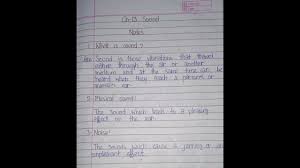 Ch-13 Sound
Notes
1. What is sound?
Ans Sound is those vibrations that travel
either through the air or another
medium and at the same time can be
heard when they reach a person's or
animal's ear.
2. Musical sound:
The sound which leads to a pleasing
effect on the ear.
3. Noise:
The sounds which cause a jarring or an
unpleasant effect.